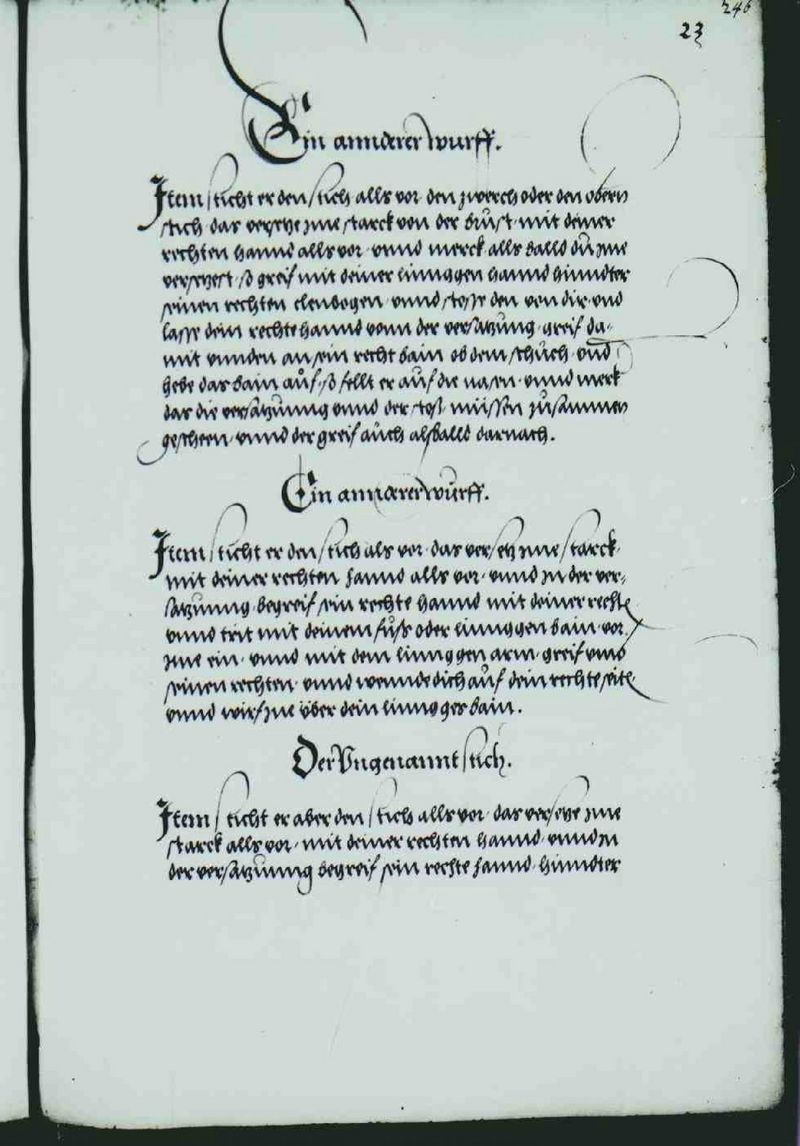 246
23
Ein annderer wurff.
Item sticht er den stich alls vor · den zwerch oder den obern
stich · das verseze jme starck von der brust · mit deiner
rechten hannd alls vor · vnnd merck · alls balld du jme
versezest · so greif mit deiner linnggen hannd hinndter
seinen rechten elenbogen · vnnd stosse den von dir · vnd
lasse dein rechte hannd vonn der versatzung · greif da-
mit vnnden an sein recht bain ob dem schuch · vnd
hebe das bain auf · so fellt er auf die nasen · vnnd merk
das die versatzunng vnnd der stos müssen zusammen
gescheen · vnnd der greif auch alsballd darnach.
Ein annderer wurff.
Item sticht er den stich als vor · das versetz jme starck ·
mit deiner rechten hannd alls vor · vnnd in der ver-
satzunng · begreif sein rechte hannd mit deiner rechte
vnnd trit mit deinem fuss oder linnggen bain · vor
jme ein · vnnd mit dem linnggen arm · greif vmb
seinen rechten · vnnd wennde dich auf dein rechte seite
vnnd wirf jne über dein linngges bain.
Der Vngenannt stich.
Item sticht er aber den stich alls vor · das verseze jme
starck alls vor · mit deiner rechten hannd · vnnd in
der versatzunng begreif sein rechte hannd · hinndter